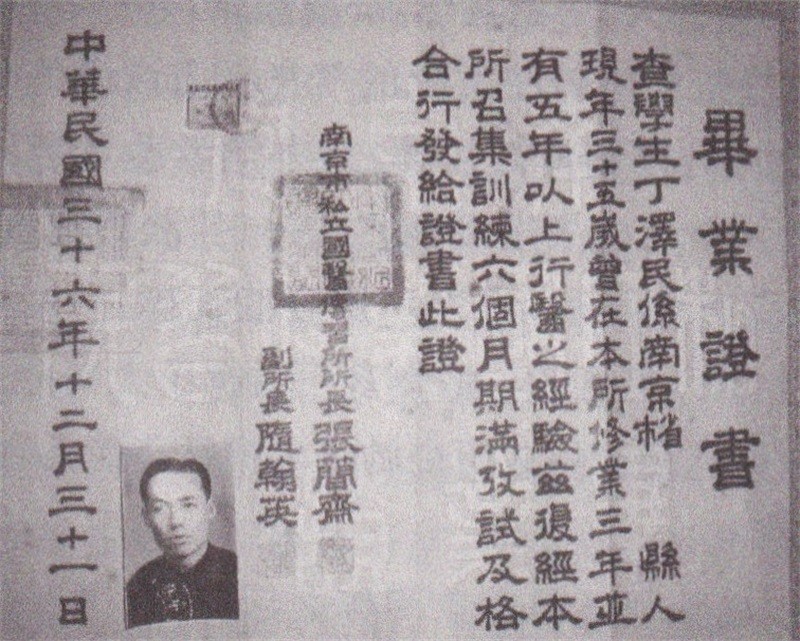 畢業證書
查學生丁澤民係南京省市 縣人
現年三十五歲曾在本所修業三年並
有五年以上行醫之經驗茲復經本
所召集訓練六個月期滿攷試及格
合行發給證書此證
南京市私立國醫傳習所所長張簡齋
副所長隨翰英
中華民國三十六年十二月三十一日